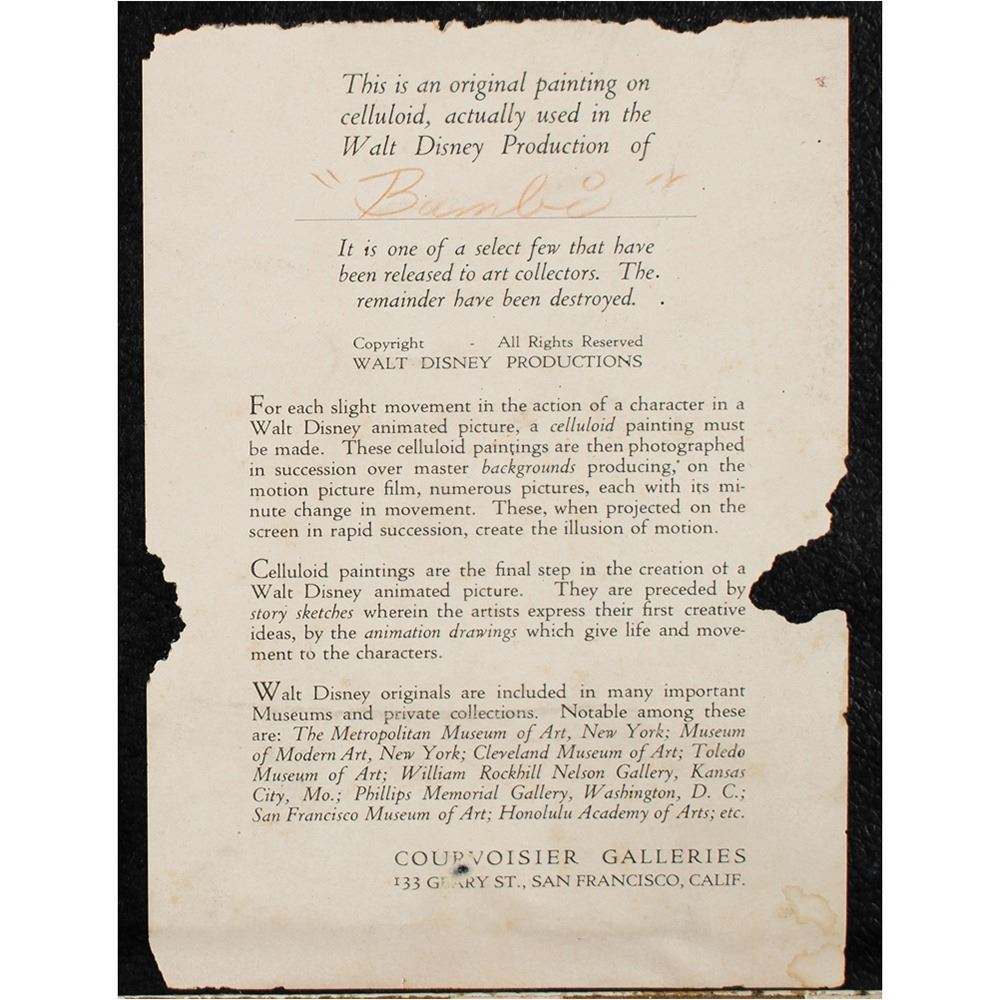 This is an original painting on
celluloid, actually used in the
Walt Disney Production of
"Bambi"
It is one of a select few that have
been released to art collectors. The
remainder have been destroyed.
Copyright - All Rights Reserved
WALT DISNEY PRODUCTIONS
For each slight movement in the action of a character in a
Walt Disney animated picture, a celluloid painting must
be made. These celluloid paintings are then photographed
in succession over master backgrounds producing, on the
motion picture film, numerous pictures, each with its mi-
nute change in movement. These, when projected on the
screen in rapid succession, create the illusion of motion.
Celluloid paintings are the final step in the creation of a
Walt Disney animated picture. They are preceded by
story sketches wherein the artists express their first creative
ideas, by the animation drawings which give life and move-
ment to the characters.
Walt Disney originals are included in many important
Museums and private collections. Notable among these
are: The Metropolitan Museum of Art, New York; Museum
of Modern Art, New York; Cleveland Museum of Art; Toledo
Museum of Art; William Rockhill Nelson Gallery, Kansas
City, Mo.; Phillips Memorial Gallery, Washington, D. C.;
San Francisco Museum of Art; Honolulu Academy of Arts; etc.
COURVOISIER GALLERIES
133 GEARY ST., SAN FRANCISCO, CALIF.